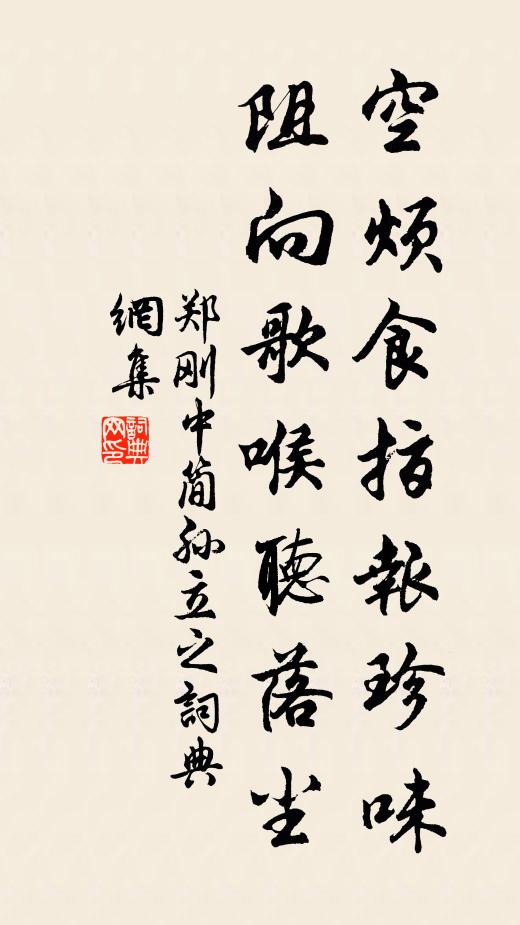 空烦食指報珍味
阻向歌喉聽落尘
郑刚中简孙立之詞典
網集
詞典
网印